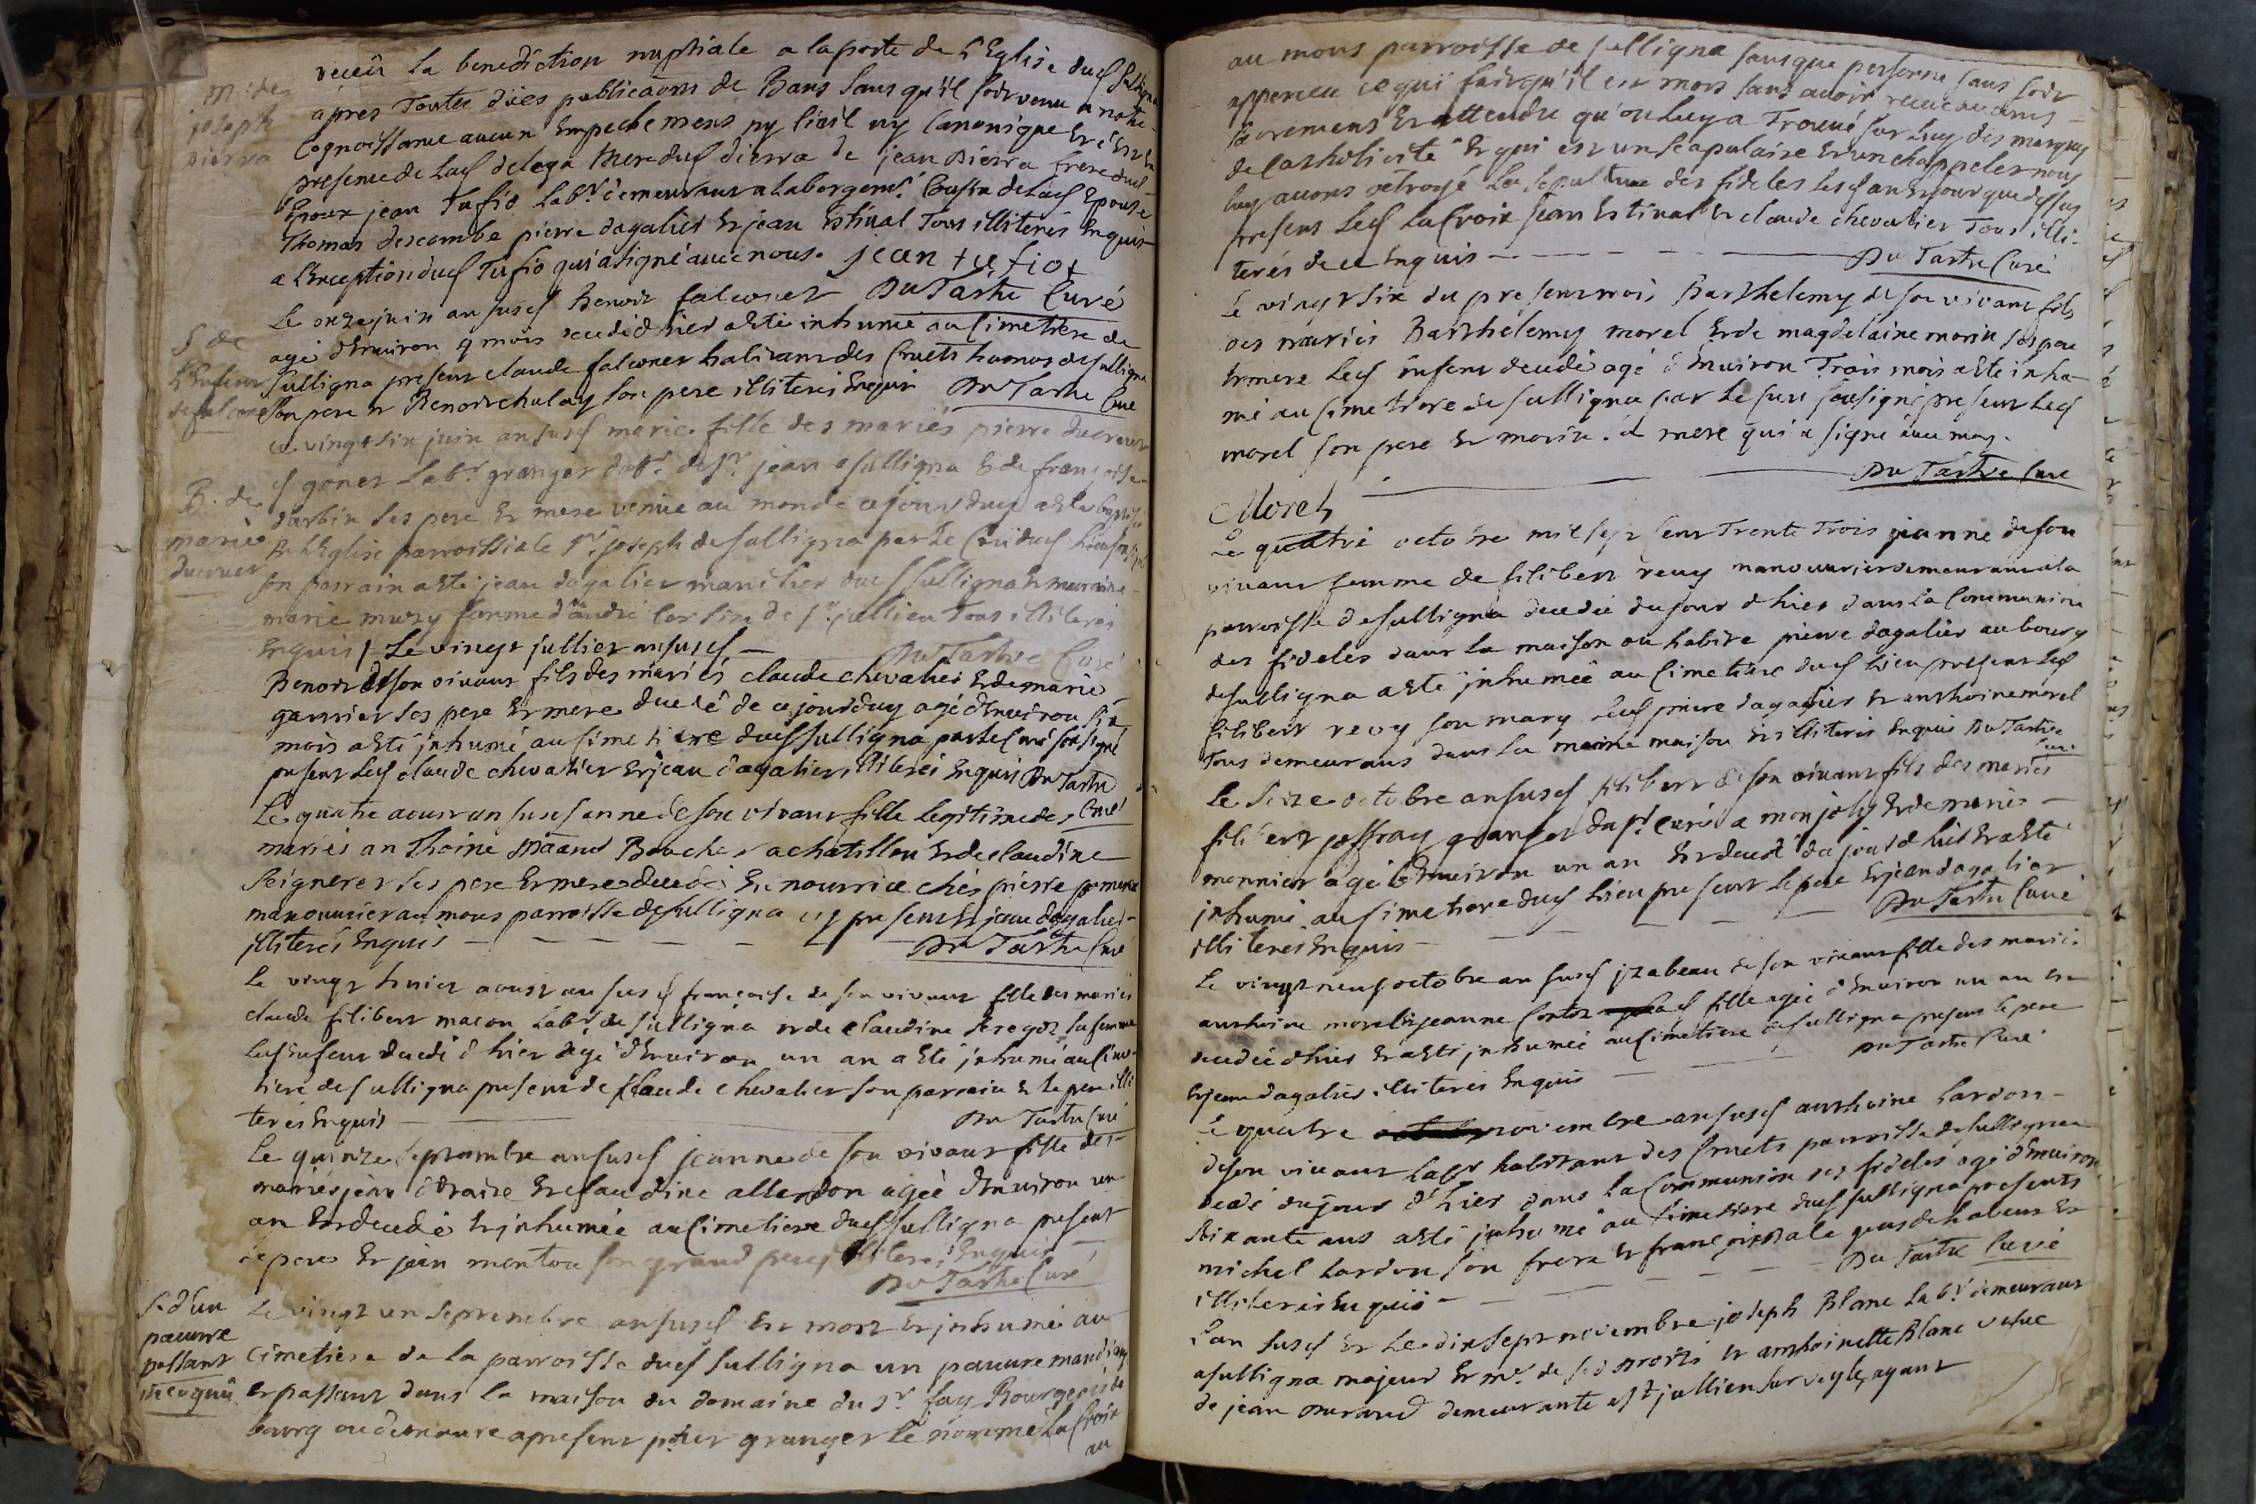 receû la benediction nuptiale a la porte de l'Eglise dud Sulligna
apres Toutes dües publicaons de Bans sans qu'il soit venu a notre
Cognoissance aucun Empechement ny Civil ny Canonique Et c'Est En
presence de lad delega mere dud dierra de jean dierra frere dud
Epoux jean Tufio labr demeurant a labergemt Cousin de lad Epouse
Thomas descombe pierre dagalier Et jean Estival Tous illiterés Enquis
a l'Exception dud Tufio qui a signé avec nous. jean tufiot
M: de
joseph
dierra
Du Tartre Curé
Le onze juin an susd Benoit falconet
agé d'Environ 4 mois decedé d'hier a Esté inhumé au Cimetiere de
Sulligna present claude falconet habitant des Cruets hameau de Sulligna
son pere et Benoit chulay son pere illiterés Enquis Du Tartre Curé
S de
l'Enfant
de falconet
Le vingt six juin an susd marie fille des mariés pierre ducruet
labr granger de sr jean a Sulligna Et de françoise
darbin ses pere Et mere venue au monde ce jourduy a Esté baptisée
En l'Eglise parroissiale St joseph de Sulligna par le Curé dud lieu
son parrain a Esté jean dagalier manilier dud Sulligna Et marraine
marie mury femme d'andré de St jullien Tous illiterés
Enquis Du Tartre Curé
B. de
marie
ducruet
Le vingt jullier an susd
Benoit de son vivant fils des mariés claude chevalier Et de marie
garnier ses pere Et mere decedé de ce jourduy agé d'Environ six
mois a Esté inhumé au Cimetiere dud Sulligna par le Curé soussigné
present led claude chevalier Et jean dagalier, illiterés Enquis Du Tartre
Curé
Le quatre aoust an susd anne de son vivant fille legitime des
mariés anthoine Boucher a chatillon Et de claudine
Seigneret ses pere Et mere decedé En nourrice chés pierre
manouvrier au mons parroisse de Sulligna cy present Et jean dagalier
illiterés Enquis — Du Tartre Curé
Le vingt huict aoust an susd françoise de son vivant fille des mariés
claude filibert macon labr de Sulligna et de claudine sa femme
lad Enfant decedé d'hier agé d'Environ un an a Esté inhumé au Cime-
tiere de Sulligna present de claude chevalier son parrain Et le pere illi-
terés Enquis — Du Tartre Curé
Le quinze septembre an susd jeanne de son vivant fille des
mariés jean Et claudine allerdon agée d'Environ un
an Est decedé Et inhumée au Cimetiere dud Sulligna present
le pere Et jean menton son grand pere illiterés Enquis
Du Tartre Curé
S. d'un
pauvre
passant
incognû
Le vingt un septembre an susd Est mort Et inhumé au
Cimetiere de la parroisse dud Sulligna un pauvre mandiant
Et passant dans la maison du domaine du sr fay Bourgeois de
bourg ou demeure a present pour granger le nommé la Croix
au
au mons parroisse de Sulligna sans que personne s'en soit
apperceu ce qui fait qu'il est mort sans avoir receu aucuns
Sacremens Et attendu qu'on luy a Trouvé sur luy des marques
de Catholicité Et qui est un Scapulaire Et un chappelet nous
luy avons octroyé la sepulture des fideles lesd an Et jour que dessus
presens led la Croix jean Estival Et claude chevalier Tous illi-
terés de ce Enquis — Du Tartre Curé
Le vingt six du present mois Barthelemy de son vivant fils
des mariés Barthelemy morel Et de magdelaine morin ses pere
Et mere led Enfant decedé agé d'Environ Trois mois a Esté inhu-
mé au Cimetiere de Sulligna par le Curé sousigné present led
morel son pere Et morin qui a signé avec moy.
Du Tartre Curé
Morel
Le quatre octobre mil sept Cent Trente Trois jeanne de son
vivant femme de filibert revy manouvrier demeurant a la
parroisse de Sulligna decedée du jour d'hier dans la Communion
des fideles dans la maison ou habite pierre dagalier au bourg
de Sulligna a Esté inhumée au Cimetiere dud lieu present led
filibert revy son mary led pierre dagalier Et anthoine morel
Tous demeurans dans la meme maison Et illiterés Enquis Du Tartre
Curé
Le Seize octobre an susd filibert de son vivant fils des mariés
filibert joffray granger du sr Curé a monjoly Et de marie
monnier agé d'Environ un an Et decedé du jour d'hier Et a Esté
inhumé au Cimetiere dud lieu present le pere Et jean dagalier
illiterés Enquis — Du Tartre Curé
Le vingt neuf octobre an susd jzabeau de son vivant fille des mariés
anthoine morel Et jeanne Contet lad fille agée d'Environ un an Est
decedée d'hier Et a Esté inhumée au Cimetiere de Sulligna present le pere
Et jean dagalier illiterés Enquis — Du Tartre Curé
Le quatre novembre an susd anthoine Lardon
de son vivant labr habitant des Cruets parroisse de Sulligna
decedé du jour d'hier dans la Communion des fideles agé d'Environ
Soixante ans a Esté inhumé au Cimetiere dud Sulligna presents
michel Lardon son frere Et gens de labeur Et
illiterés Enquis — Du Tartre Curé
L'an susd Et le dix sept novembre joseph Blanc labr demeurant
a Sulligna majeur Et mr de ses droits Et anthoinette Blanc vefve
de jean durand demeurante a St jullien sur veyle, ayant